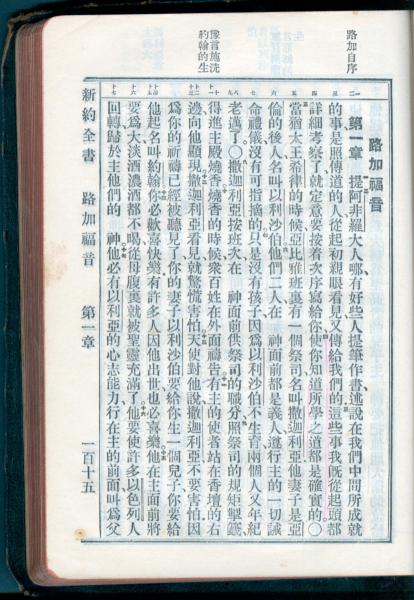 路加自序
豫言施洗
約翰的生
路加福音
第一章 提阿非羅大人哪有好些人提筆作書述說在我們中間所成就
的事是照傳道的人從起初親眼看見又傳給我們的這些事我既從起頭都
詳細考察了就定意要按着次序寫給你使你知道所學之道都是確實的〇
當猶太王希律的時候亞比雅班裏有一個祭司名叫撒迦利亞他妻子是亞
倫的後人名叫以利沙伯他們二人在 神面前都是義人遵行主的一切誡
命禮儀沒有可指摘的只是沒有孩子因爲以利沙伯不生育兩個人又年紀
老邁了〇撒迦利亞按班次在 神面前供祭司的職分照祭司的規矩掣籤
得進主殿燒香燒香的時候衆百姓在外面禱告有主的使者站在香壇的右
邊向他顯現撒迦利亞看見就驚慌害怕天使對他說撒迦利亞不要害怕因
爲你的祈禱已經被聽見了你的妻子以利沙伯要給你生一個兒子你要給
他起名叫約翰你必歡喜快樂有許多人因他出世也必喜樂他在主面前將
要爲大淡酒濃酒都不喝從母腹裏就被聖靈充滿了他要使許多以色列人
回轉歸於主他們的 神他必有以利亞的心志能力行在主的前面叫爲父
新約全書 路加福音 第一章 一百十五